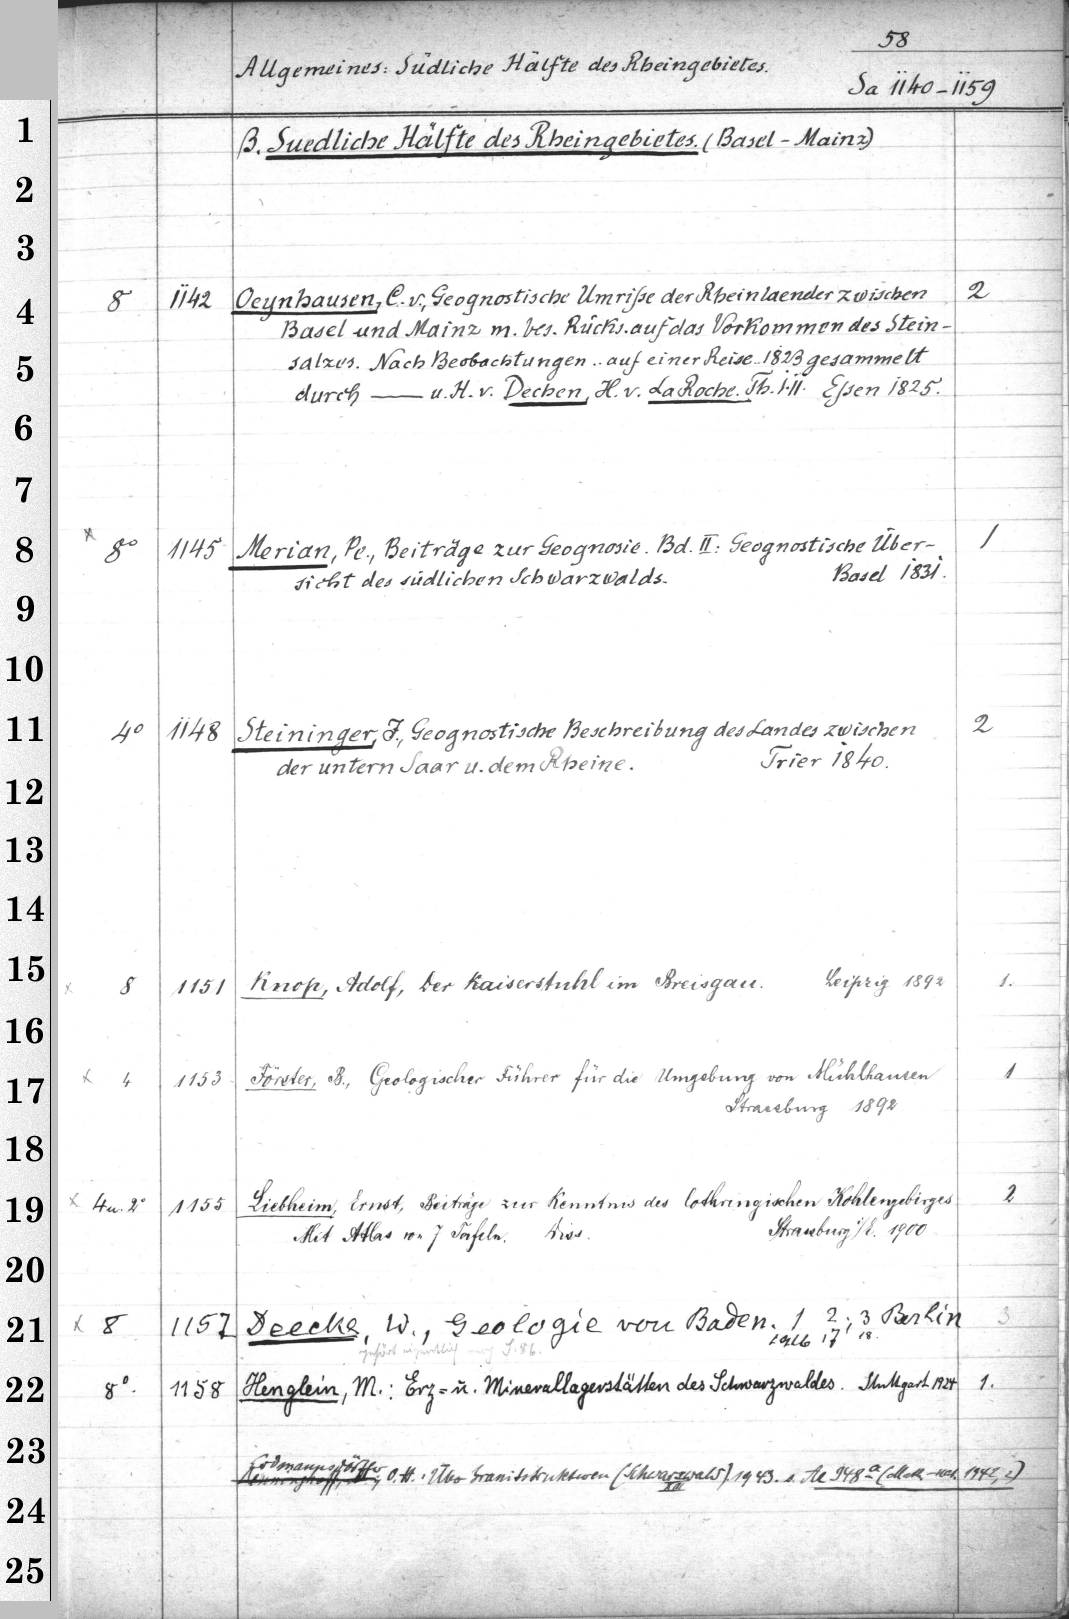 58
Allgemeines: Südliche Hälfte des Rheingebietes.
Sa 1140-1159
1
B. Suedliche Hälfte des Rheingebietes. (Basel - Mainz)
2
3
8 1142 Oeynhausen, C. v., Geognostische Umriſse der Rheinlaender zwischen 2
4
Basel und Mainz m. bes. Rücks. auf das Vorkommen des Stein-
5
salzes. Nach Beobachtungen .. auf einer Reise .. 1823 gesammelt
durch — u. H. v. Dechen, H. v. La Roche. Th. I. II. Eſsen 1825.
6
7
8
x 8° 1145 Merian, Pe., Beiträge zur Geognosie. Bd. II: Geognostische Über- 1
sicht des südlichen Schwarzwalds. Basel 1831.
9
10
11
4° 1148 Steininger, J., Geognostische Beschreibung des Landes zwischen 2
der untern Saar u. dem Rheine. Trier 1840.
12
13
14
15
x 8 1151 Knop, Adolf, Der Kaiserstuhl im Breisgau. Leipzig 1892 1.
16
17
x 4 1153 Förster, B., Geologischer Führer für die Umgebung von Mühlhausen 1
Strassburg 1892
18
19
x 4 u. 2° 1155 Liebheim, Ernst, Beiträge zur Kenntnis des lothringischen Kohlengebirges 2
Mit Atlas von 7 Tafeln. Diss. Strassburg i/E. 1900
20
21
x 8 1157 Deecke, W., Geologie von Baden. 1 2; 3 Berlin 3
1916 17 18.
S. 86.
22
8°. 1158 Henglein, M.: Erz- u. Minerallagerstätten des Schwarzwaldes. Stuttgart 1924 1.
23
Erdmannsdörffer, O. H.: Über Granitstrukturen (Schwarzwald) 1943. s. 948a (Math.-nat. 1942, 2)
XIII
24
25